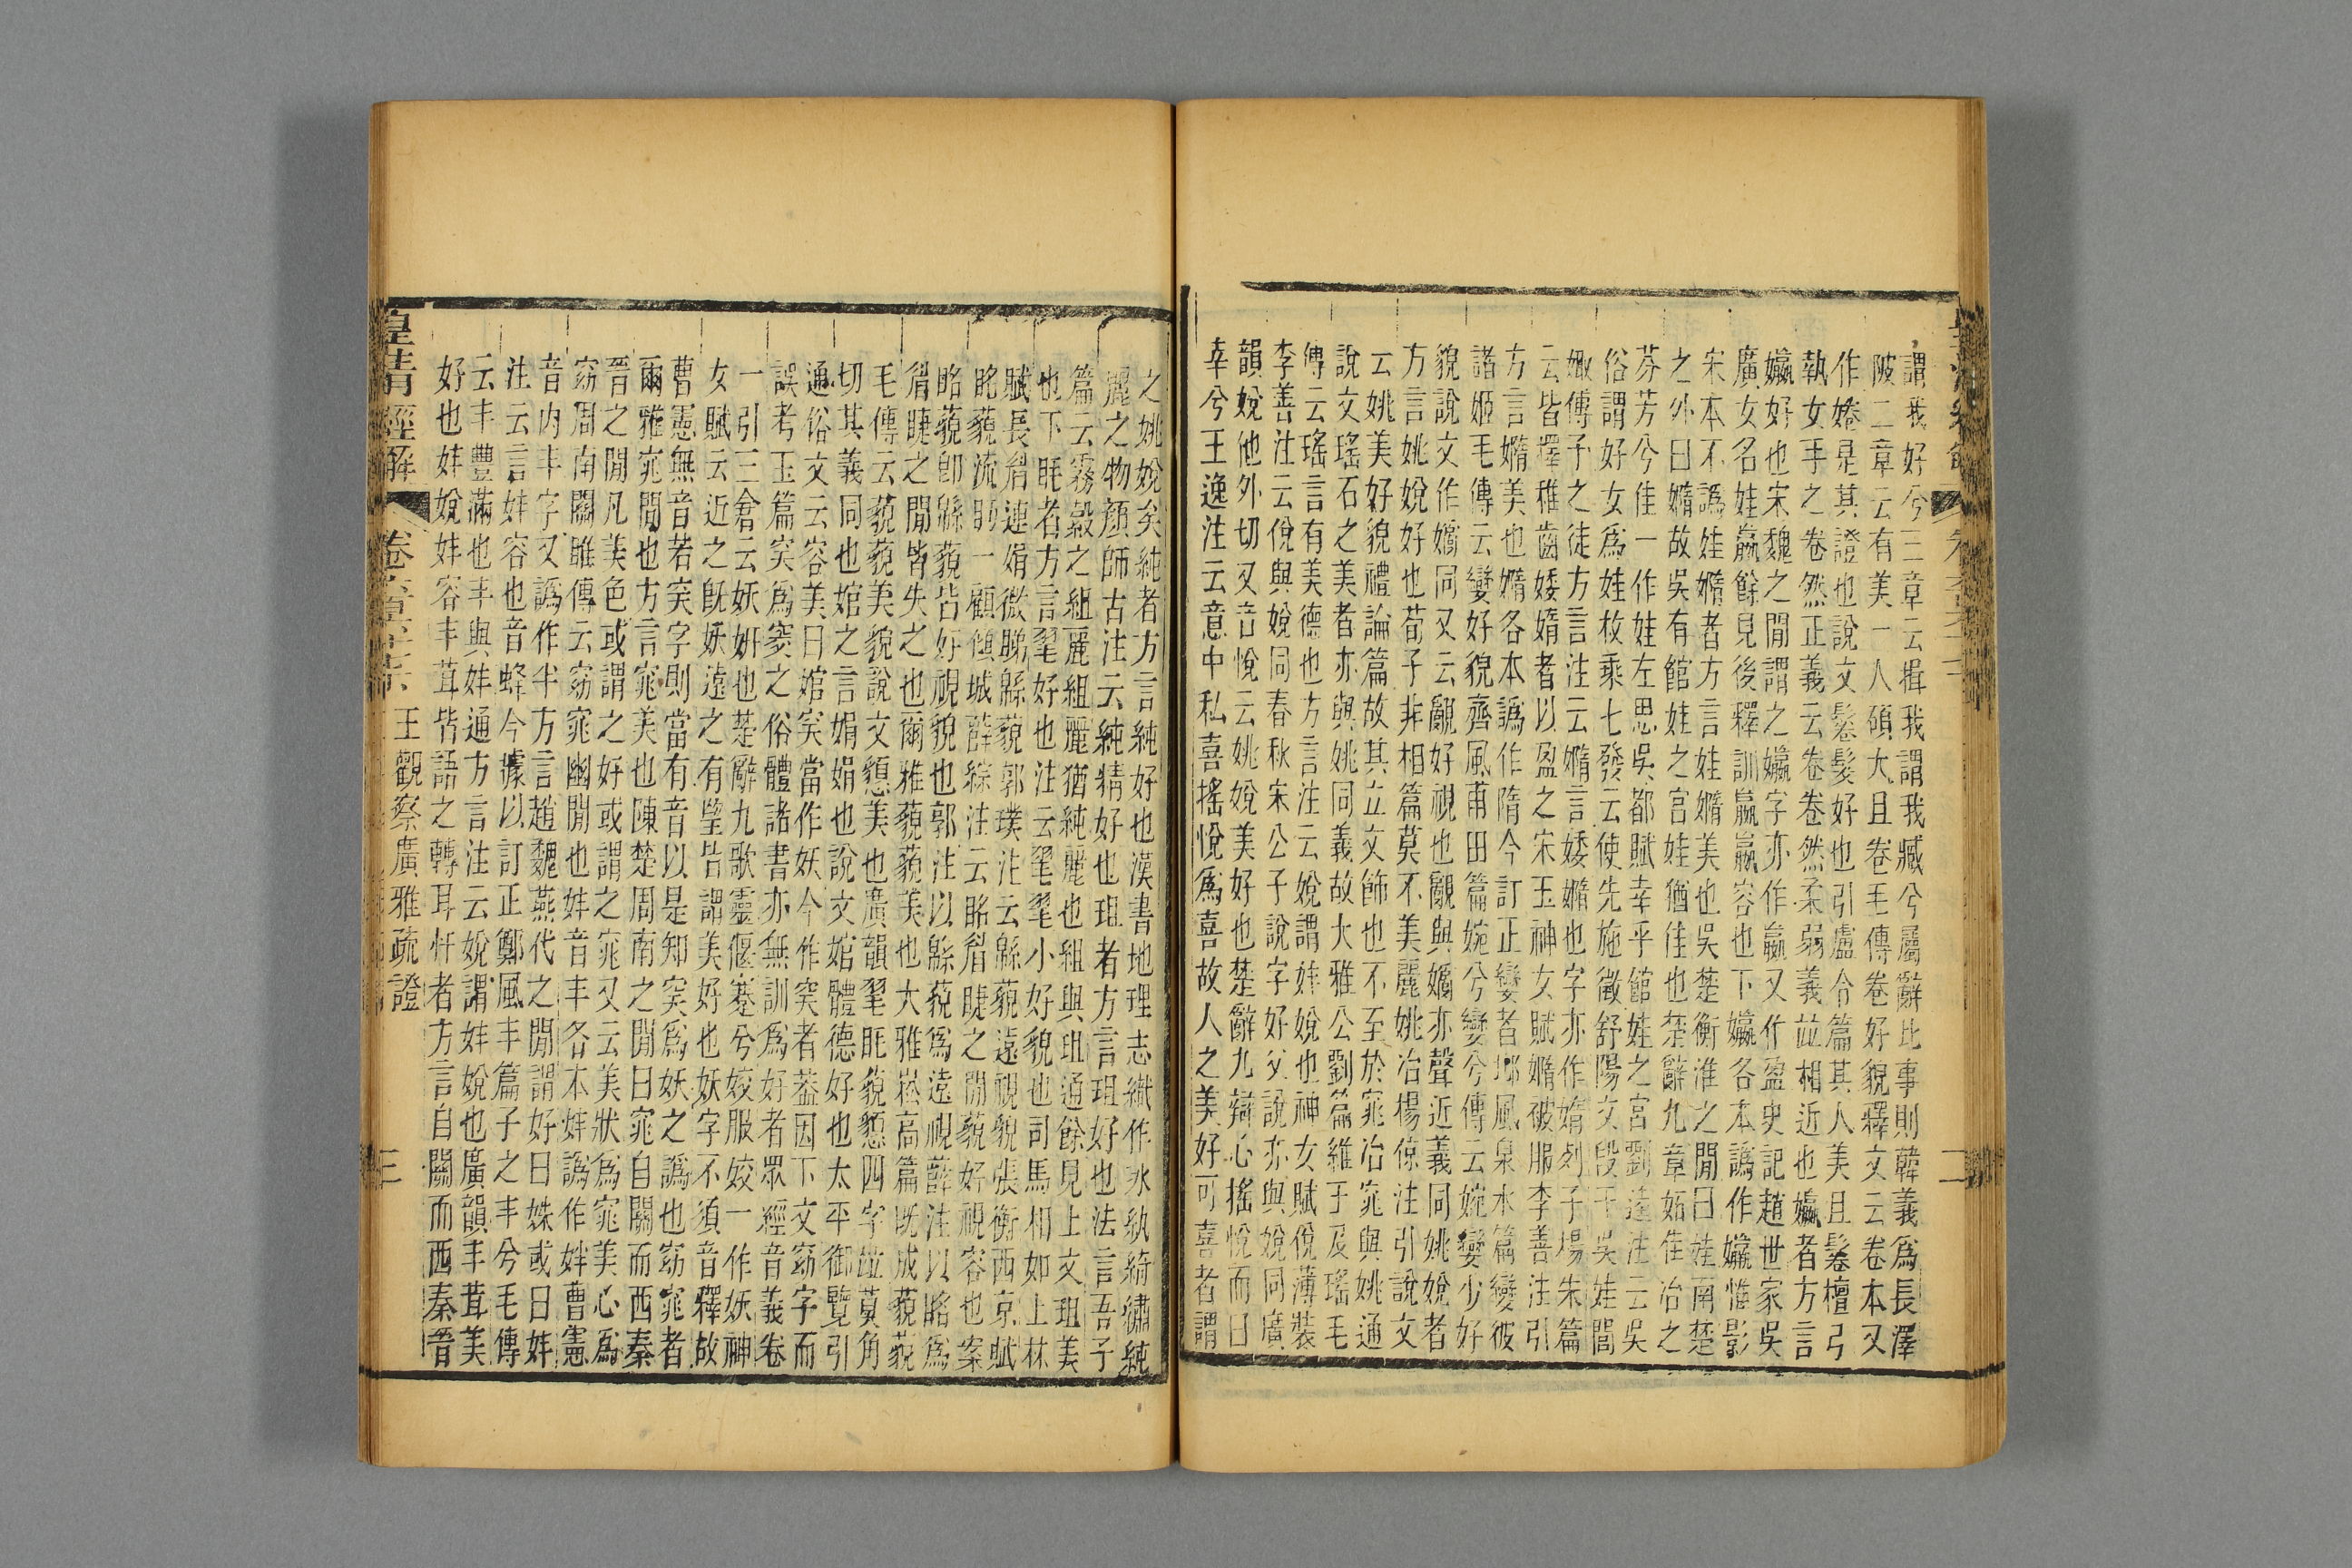 謂我好兮三章云揖我謂我臧兮屬辭比事則韓義爲長澤
陂二章云有美一人碩大且卷毛傳卷好貌釋文云卷本又
作婘是其證也說文鬈髮好也引盧令篇其人美且鬈檀弓
執女手之卷然正義云卷卷然柔弱義竝相近也孂者方言
孂好也宋魏之閒謂之孂字亦作嬴又作盈史記趙世家吳
廣女名娃嬴餘見後釋訓嬴嬴容也下孂各本譌作孂惟影
宋本不譌娃媠者方言娃媠美也吳楚衡淮之閒曰娃南楚
之外曰媠故吳有館娃之宮娃猶佳也楚辭九章妬佳冶之
芬芳兮佳一作娃左思吳都賦幸乎館娃之宮劉逵注云吳
俗謂好女爲娃枚乘七發云使先施徵舒陽文段干吳娃閭
娵傅子之徒方言注云媠言婑媠也字亦作婧列子楊朱篇
云皆擇稚齒婑媠者以盈之宋玉神女賦媠被服李善注引
方言媠美也媠各本譌作隋今訂正孌者邶風泉水篇孌彼
諸姬毛傳云孌好貌齊風甫田篇婉兮孌兮傳云婉孌少好
貌說文作嫡同又云覶好視也覶與嫡亦聲近義同姚娧者
方言姚娧好也荀子非相篇莫不美麗姚冶楊倞注引說文
云姚美好貌禮論篇故其立文飾也不至於窕冶窕與姚通
說文瑤石之美者亦與姚同義故大雅公劉篇維玉及瑤毛
傳云瑤言有美德也方言注云娧謂姅娧也神女賦倪薄裝
李善注云倪與娧同春秋宋公子說字好父說亦與娧同廣
韻娧他外切又音悅云姚娧美好也楚辭九辯心搖悅而日
幸兮王逸注云意中私喜搖悅爲喜故人之美好可喜者謂
之姚娧矣純者方言純好也漢書地理志織作冰紈綺繡純
麗之物顏師古注云純精好也珇者方言珇好也法言吾子
篇云霧縠之組麗組麗猶純麗也組與珇通餘見上文珇美
也下眊者方言㲝好也注云㲝㲝小好貌也司馬相如上林
賦長眉連娟微睇緜藐郭璞注云緜藐遠視貌張衡西京賦
眳藐流眄一顧傾城薛綜注云眳眉睫之閒藐好視容也案
眳藐卽緜藐皆好視貌也郭注以緜藐爲遠視薛注以眳爲
眉睫之閒皆失之也爾雅藐藐美也大雅崧高篇旣成藐藐
毛傳云藐藐美貌說文懇美也廣韻㲝眊藐懇四字竝莫角
切其義同也婠之言娟娟也說文婠體德好也太平御覽引
通俗文云容美曰婠㝔當作妖今作㝔者葢因下文窈字而
誤考玉篇㝔爲窔之俗體諸書亦無訓爲好者眾經音義卷
一引三倉云妖妍也楚辭九歌靈偃蹇兮姣服姣一作妖神
女賦云近之旣妖遠之有望皆謂美好也妖字不須音釋故
曹憲無音若㝔字則當有音以是知㝔爲妖之譌也窈窕者
爾雅窕閒也方言窕美也陳楚周南之閒曰窕自關而西秦
晉之閒凡美色或謂之好或謂之窕又云美狀爲窕美心爲
窈周南關雎傳云窈窕幽閒也姅音丰各本姅譌作姅曹憲
音內丰字又譌作半方言趙魏燕代之閒謂好曰姝或曰姅
注云言姅容也音蜂今據以訂正鄭風丰篇子之丰兮毛傳
云丰豐滿也丰與姅通方言注云娧謂姅娧也廣韻丰茸美
好也姅娧姅容丰茸皆語之轉耳忓者方言自關而西秦晉
皇清經解 王觀察廣雅疏證 三